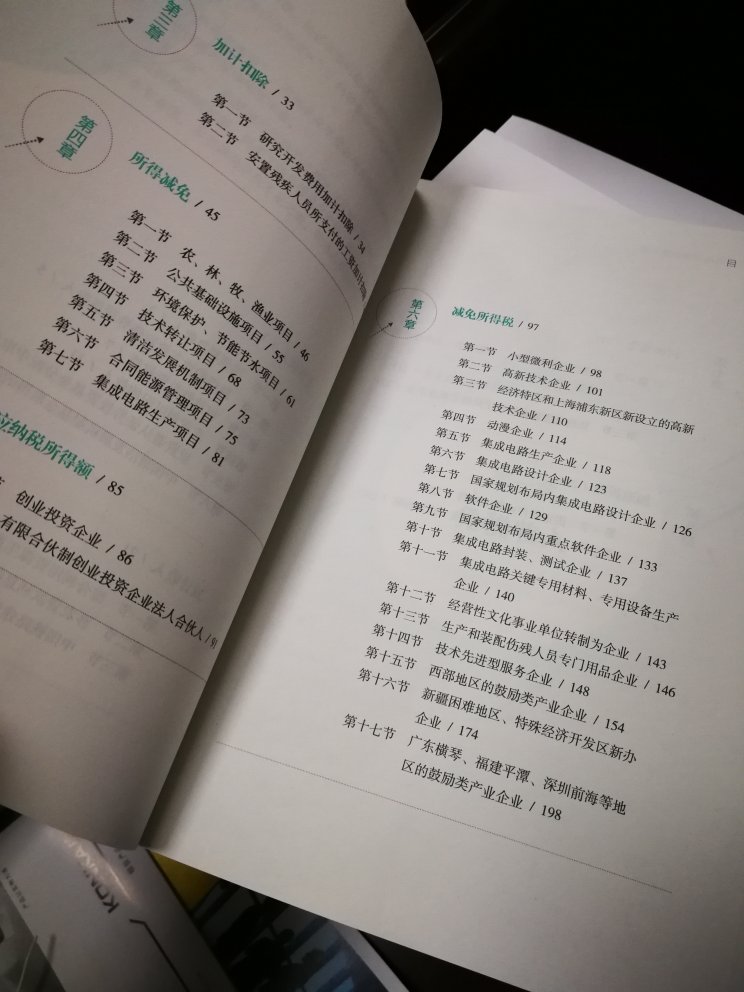 第三章
加计扣除 / 33
第一节 研究开发费用加计扣除 / 34
第二节 安置残疾人员所支付的工资加计扣除
第四章
所得减免 / 45
第一节 农、林、牧、渔业项目 / 46
第二节 公共基础设施项目 / 55
第三节 环境保护、节能节水项目 / 61
第四节 技术转让项目 / 68
第五节 清洁发展机制项目 / 73
第六节 合同能源管理项目 / 75
第七节 集成电路生产项目 / 81
应纳税所得额 / 85
节 创业投资企业 / 86
有限合伙制创业投资企业法人合伙人 / 91
目
第六章
减免所得税 / 97
第一节 小型微利企业 / 98
第二节 高新技术企业 / 101
第三节 经济特区和上海浦东新区新设立的高新
技术企业 / 110
第四节 动漫企业 / 114
第五节 集成电路生产企业 / 118
第六节 集成电路设计企业 / 123
第七节 国家规划布局内集成电路设计企业 / 126
第八节 软件企业 / 129
第九节 国家规划布局内重点软件企业 / 133
第十节 集成电路封装、测试企业 / 137
第十一节 集成电路关键专用材料、专用设备生产
企业 / 140
第十二节 经营性文化事业单位转制为企业 / 143
第十三节 生产和装配伤残人员专门用品企业 / 146
第十四节 技术先进型服务企业 / 148
第十五节 西部地区的鼓励类产业企业 / 154
第十六节 新疆困难地区、特殊经济开发区新办
企业 / 174
第十七节 广东横琴、福建平潭、深圳前海等地
区的鼓励类产业企业 / 198